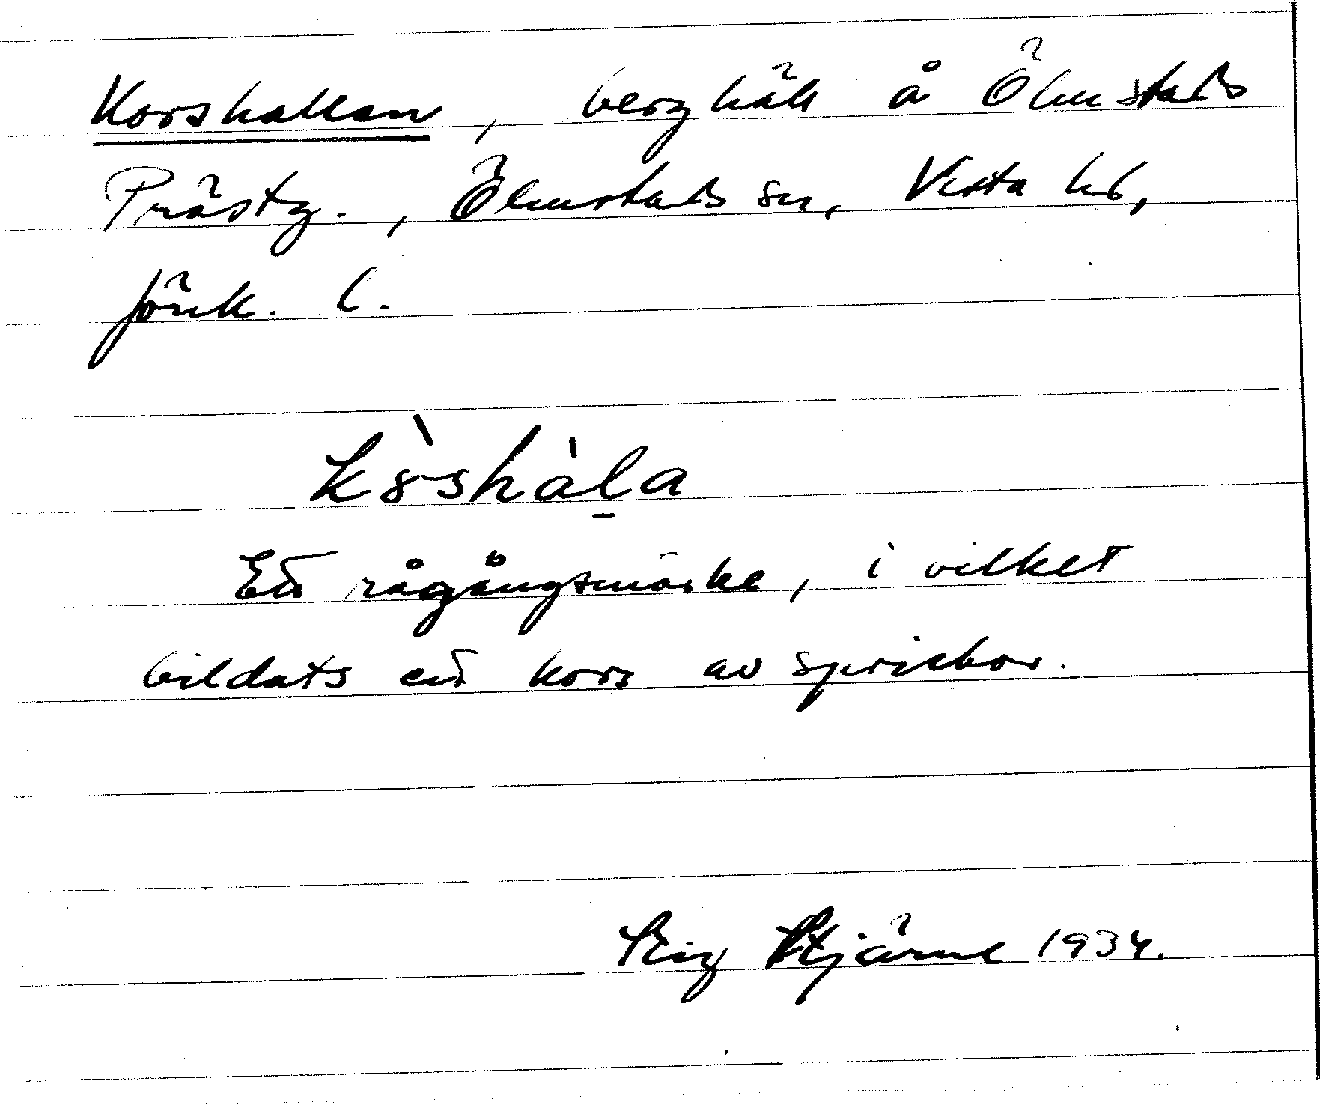 Korshallan, berghäll å Ölmstads
Prästg., Ölmstads sn, Vista hd,
Jönk. l.
kòshàla
Ett rågångsmärke, i vilket
bildats ett kors av sprickor.
Stig Hjärne 1934.